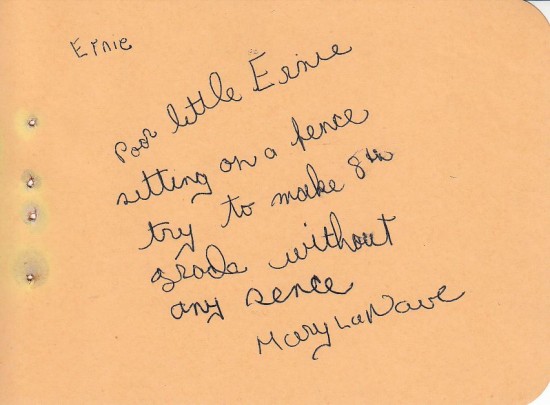 Ernie
Poor little Ernie
sitting on a fence
try to make 8th
grade without
any sence
Mary LaNave